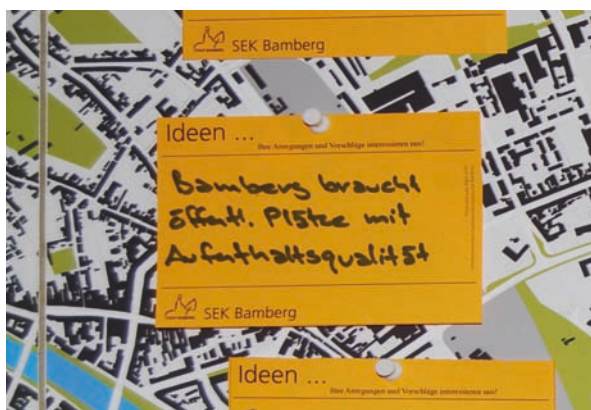 SEK Bamberg
Ideen ...
Ihre Anregungen und Vorschläge interessieren uns!
Bamberg braucht
öffentl. Plätze mit
Aufenthaltsqualität
SEK Bamberg
Ideen ...
Ihre Anregungen und Vorschläge interessieren uns!